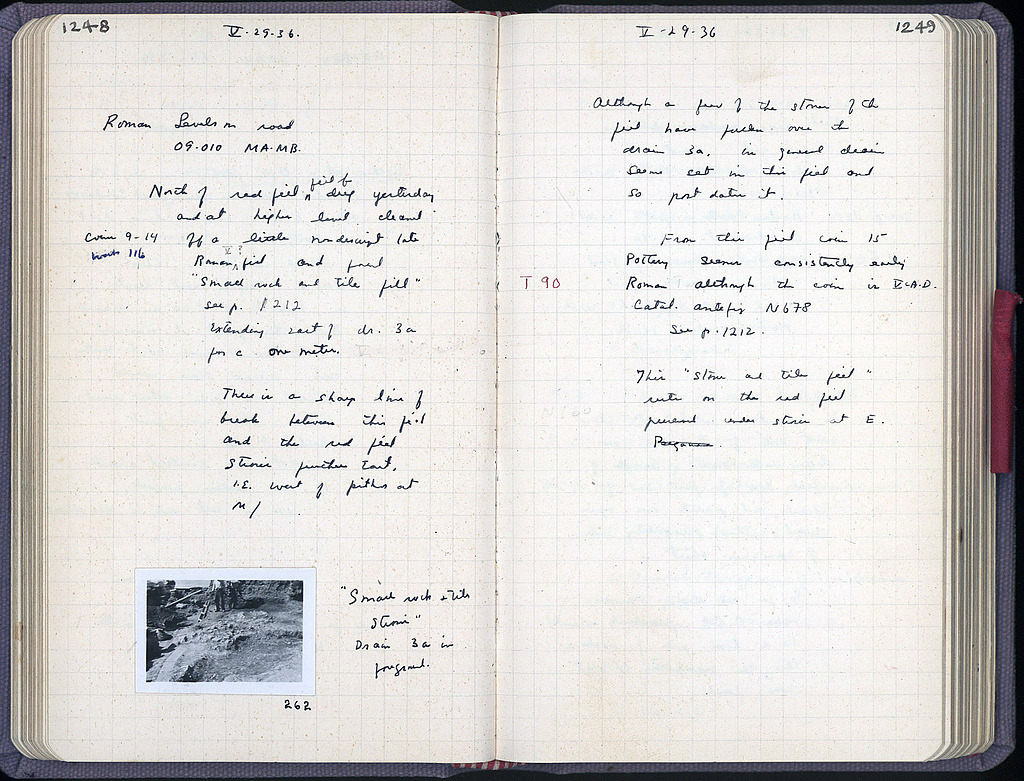 1248
V-29-36.
Roman Levels on road
09-010 MA-MB.
North of red fill, fill of dug yesterday
and at higher level cleaned
Coin 9-14
off a little nondescript late
Roman, V? fill and found
"Small rock and tile fill"
see p. 1212
Extending east of dr. 3a
for c. one meter.
There is a sharp line of
break between this fill
and the red fill
strosis further East,
I.E. west of pithos at
M/
"Small rock & tile
strosis"
Drain 3a in
foreground.
262
1249
V-29-36
Although a few of the stones of the
fill have fallen over the
drain 3a, in general drain
seems cut in this fill and
so post dates it.
From this fill coin 15
Pottery seems consistently early
T 90
Roman although the coin is V c. A.D.
Catal. antefix N678
See p. 1212.
This "stone and tile fill"
rests on the red fill
present under strosis at E.